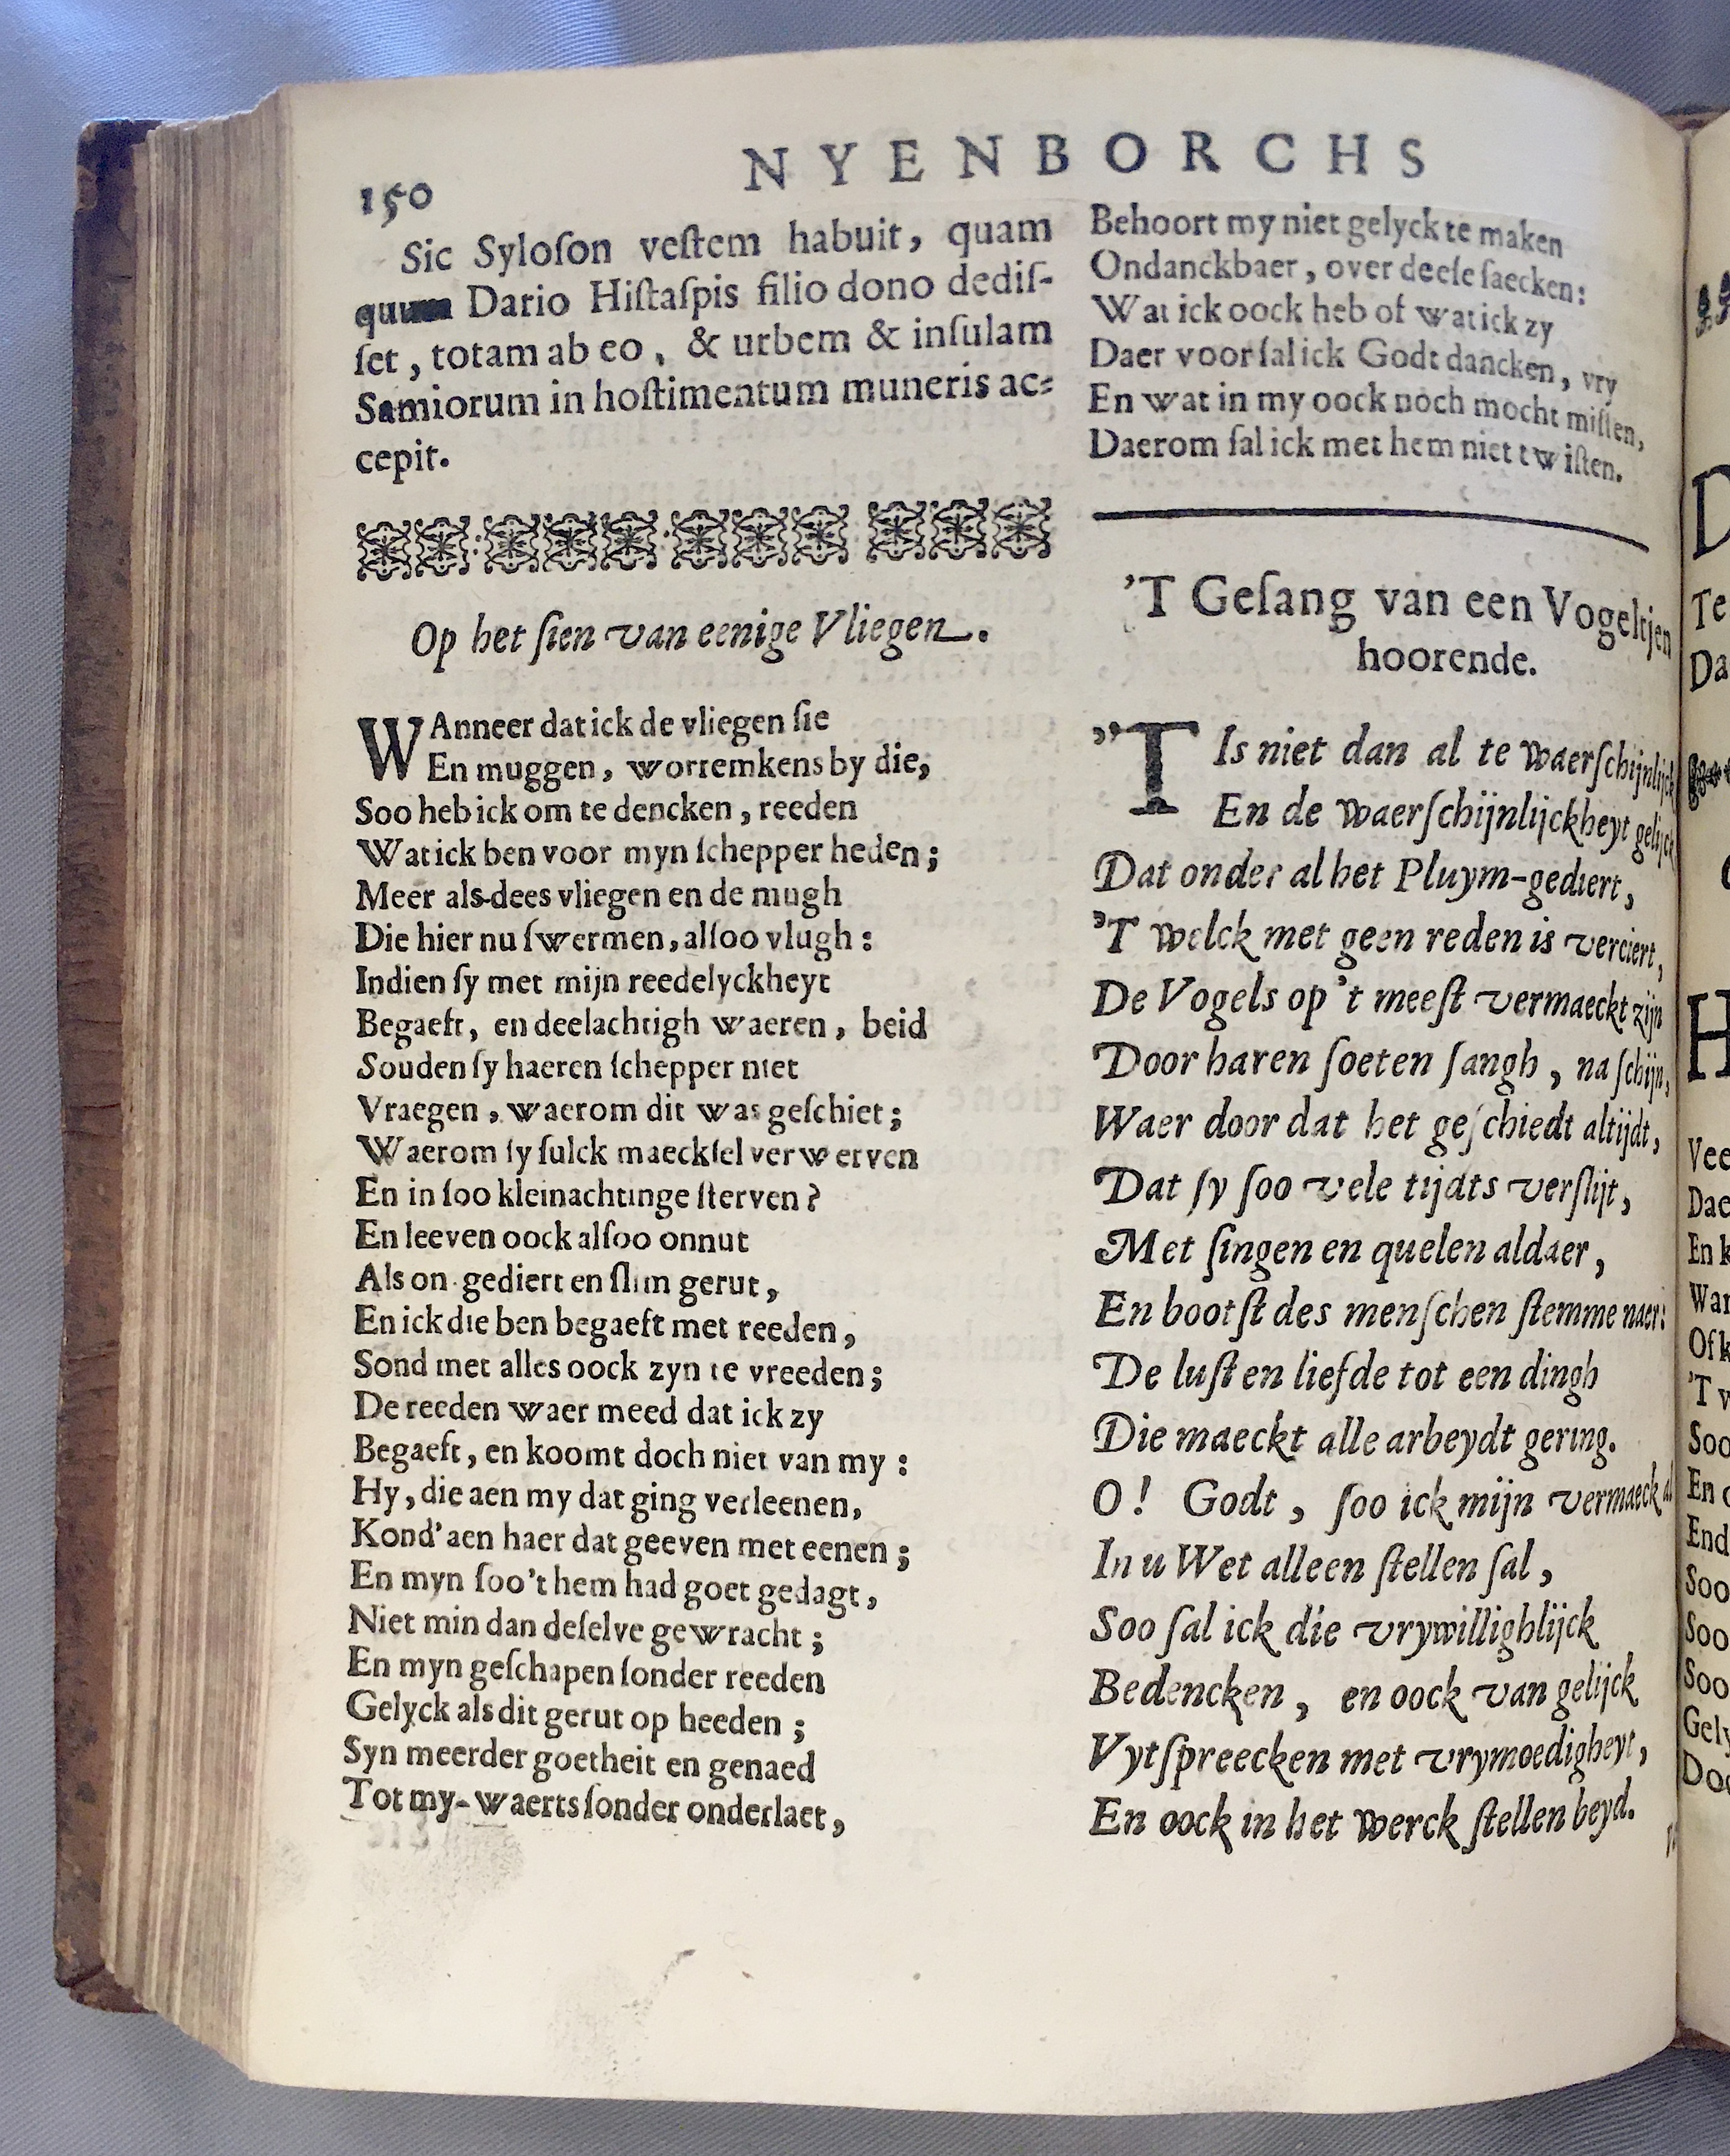 150
NYENBORCHS
Sic Syloſon veſtem habuit, quam
quum Dario Hiſtaſpis filio dono dediſ-
ſet, totam ab eo, & urbem & inſulam
Samiorum in hoſtimentum muneris ac-
cepit.
Op het ſien van eenige Vliegen.
WAnneer dat ick de vliegen ſie
En muggen, worremkens by die,
Soo heb ick om te dencken, reeden
Wat ick ben voor myn ſchepper heden;
Meer als dees vliegen en de mugh
Die hier nu ſwermen, alſoo vlugh:
Indien ſy met mijn reedelyckheyt
Begaeft, en deelachtigh waeren, beid
Souden ſy haeren ſchepper niet
Vraegen, waerom dit was geſchiet;
Waerom ſy ſulck maeckſel verwerven
En in ſoo kleinachtinge ſterven?
En leeven oock alſoo onnut
Als on-gediert en ſlim gerut,
En ick die ben begaeft met reeden,
Sond met alles oock zyn te vreeden;
De reeden waer meed dat ick zy
Begaeft, en koomt doch niet van my:
Hy, die aen my dat ging verleenen,
Kond' aen haer dat geeven met eenen;
En myn ſoo't hem had goet gedagt,
Niet min dan deſelve gewracht;
En myn geſchapen ſonder reeden
Gelyck als dit gerut op heeden;
Syn meerder goetheit en genaed
Tot my-waerts ſonder onderlaet,
Behoort my niet gelyck te maken
Ondanckbaer, over deeſe ſaecken:
Wat ick oock heb of wat ick zy
Daer voor ſal ick Godt dancken, vry
En wat in my oock noch mocht miſſen,
Daerom ſal ick met hem niet twiſten.
'T Geſang van een Vogeltjen
hoorende.
''T Is niet dan al te waerſchijnlijck
En de waerſchijnlijckheyt gelijck
Dat onder al het Pluym-gediert,
'T welck met geen reden is verciert,
De Vogels op 't meeſt vermaeckt zijn
Door haren ſoeten ſangh, na ſchijn,
Waer door dat het geſchiedt altijdt,
Dat ſy ſoo vele tijdts verſlijt,
Met ſingen en quelen aldaer,
En bootſt des menſchen ſtemme naer:
De luſt en liefde tot een dingh
Die maeckt alle arbeydt gering.
O! Godt, ſoo ick mijn vermaeck al
In u Wet alleen ſtellen ſal,
Soo ſal ick die vrywillighlijck
Bedencken, en oock van gelijck
Vytſpreecken met vrymoedigheyt,
En oock in het werck ſtellen beyd.